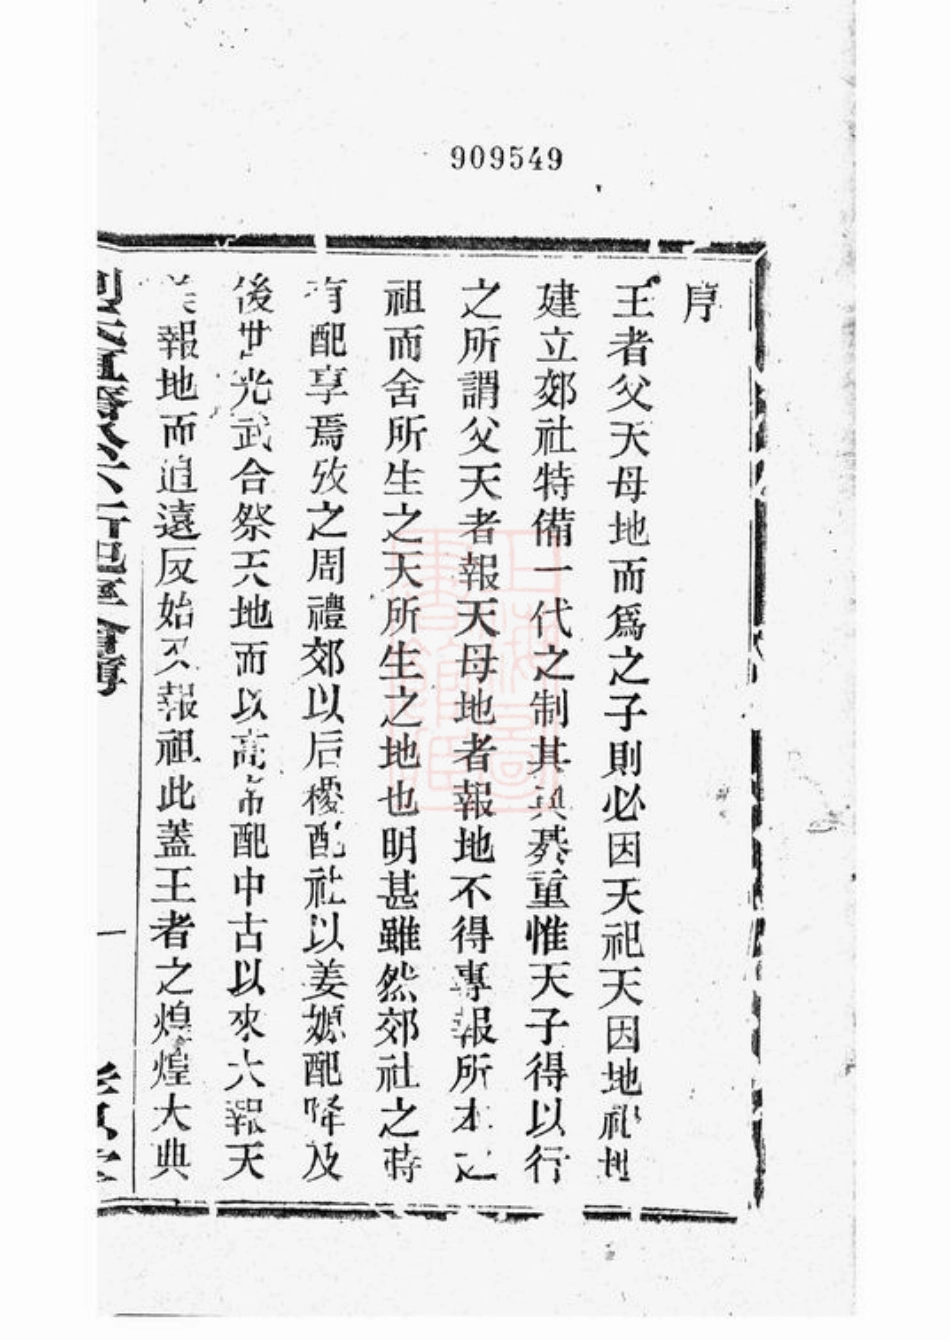 909549
序
王者父天母地而爲之子則必因天祀天因地祀地
建立郊社特備一代之制其典綦重惟天子得以行
之所謂父天者報天母地者報地不得專報所本之
祖而舍所生之天所生之地也明甚雖然郊社之時
有配享焉攷之周禮郊以后稷配社以姜嫄配降及
後世光武合祭天地而以高帝配中古以來大報天
美報地而追遠反始又報祖此蓋王者之煌煌大典
一